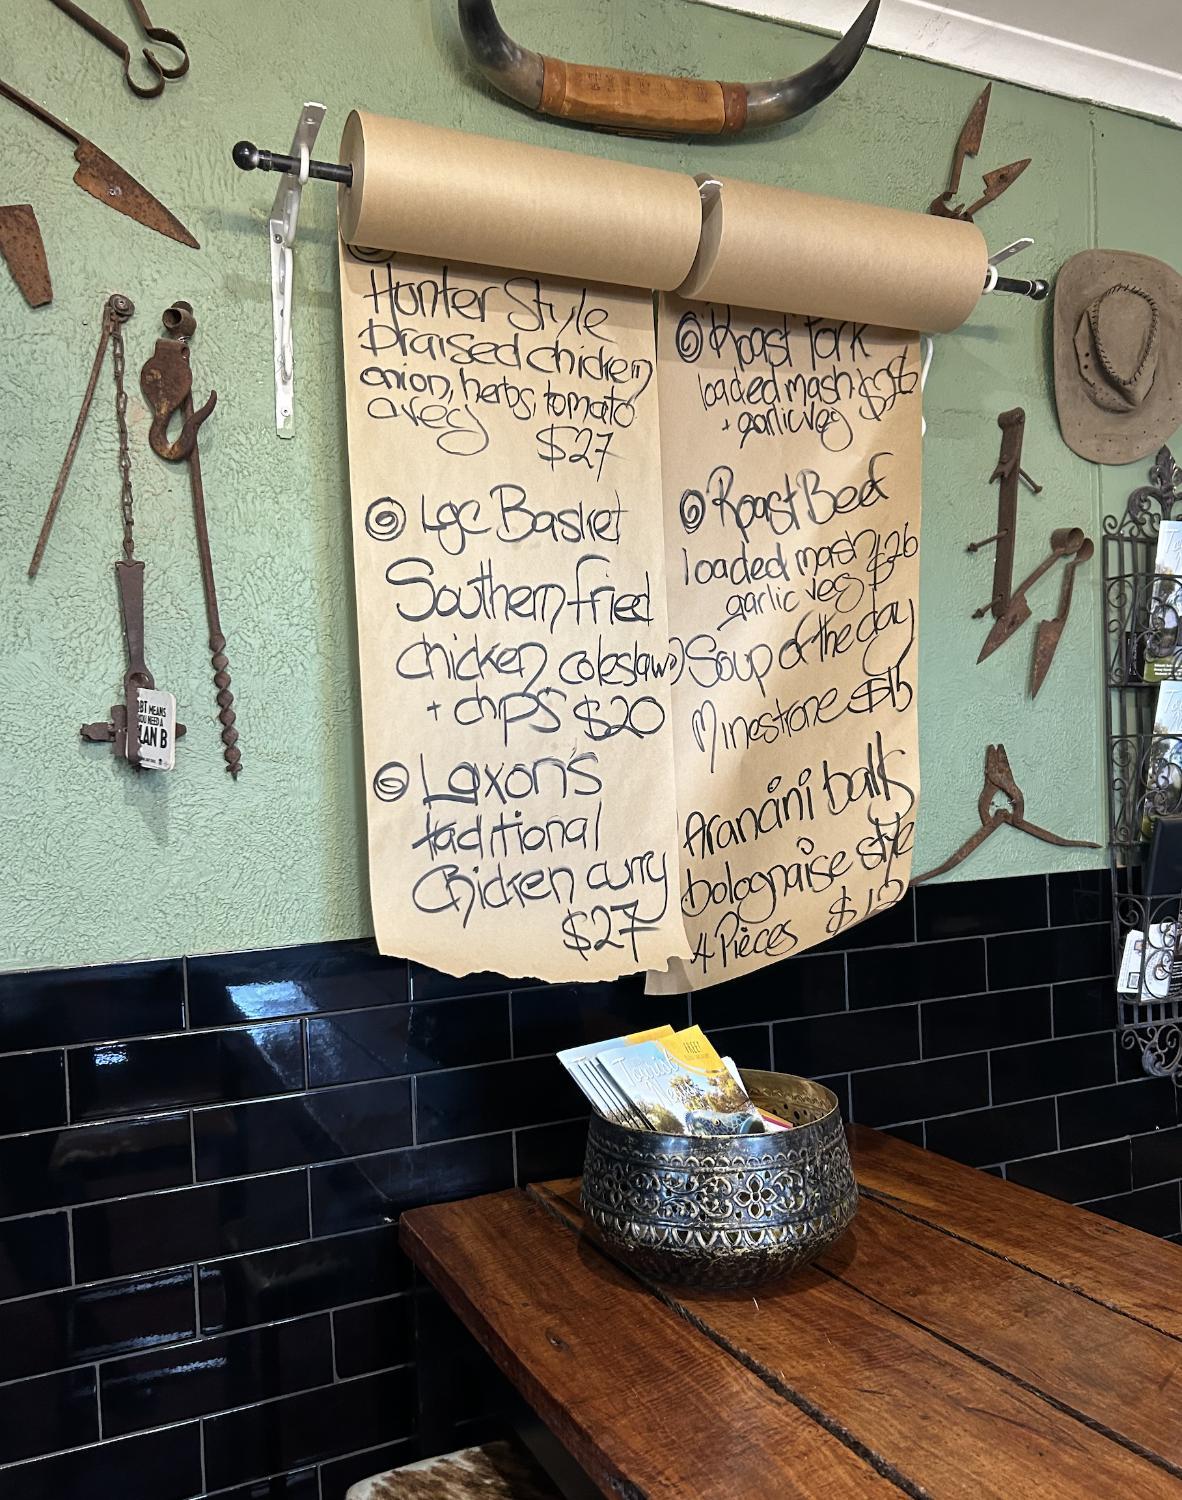 Hunter Style
Braised chicken
onion, herbs, tomato
gravy
$27
Lge Basket
Southern fried
chicken coleslaw
+ chips $20
Laxon's
traditional
Chicken curry
$27
Roast Pork
loaded mash $26
+ garlic veg
Roast Beef
loaded mash $26
garlic veg
Soup of the day
Minestrone $15
Arancini balls
bolognaise style
4 Pieces $12
MEANS
YOU NEED A
PLAN B
FREE!
Tourist
News